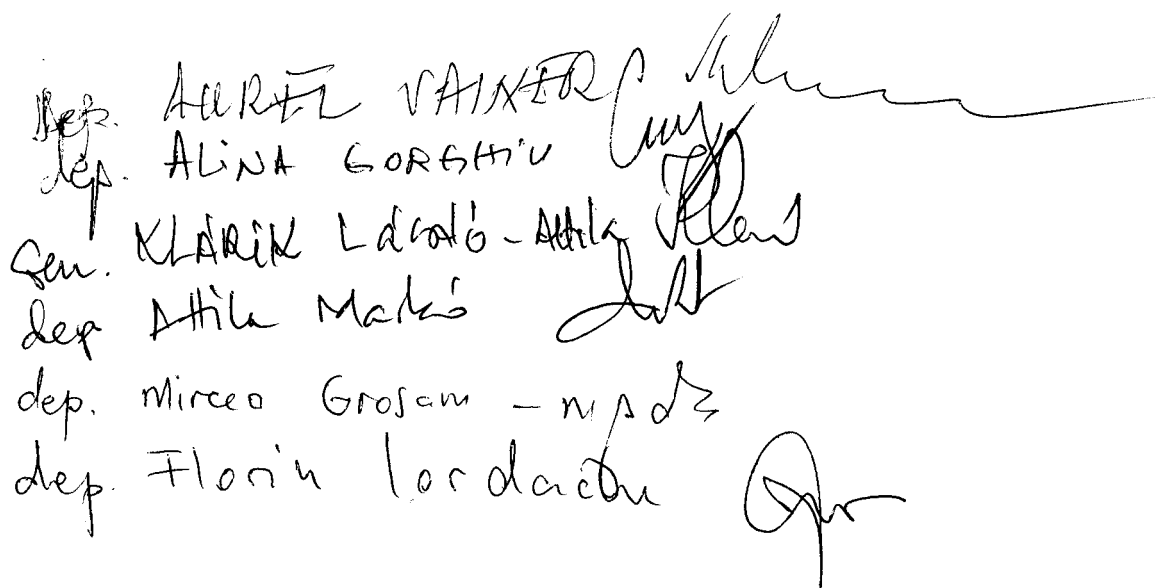 Dep. AUREL VAINER
dep. ALINA GORGHIU
Sen. KLÁRIK László-Attila
dep Attila Markó
dep. Mircea Grosaru -
dep. Florin Iordache